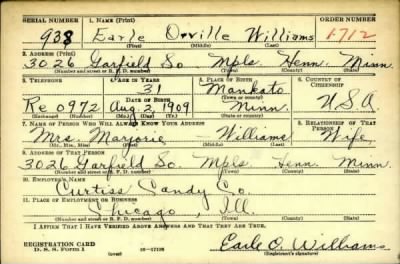 SERIAL NUMBER 1. NAME (Print) ORDER NUMBER
938 Earle Orville Williams 1712
(First) (Middle) (Last)
2. ADDRESS (Print)
3026 Garfield So. Mpls. Henn. Minn.
(Number and street or R. F. D. number) (Town) (County) (State)
3. TELEPHONE 4. AGE IN YEARS 5. PLACE OF BIRTH 6. COUNTRY OF CITIZENSHIP
31 Mankato
DATE OF BIRTH (Town or county)
Re 0972 Aug. 2, 1909 Minn. U.S.A.
(Exchange) (Number) (Mo.) (Day) (Yr.) (State or country)
7. NAME OF PERSON WHO WILL ALWAYS KNOW YOUR ADDRESS 8. RELATIONSHIP OF THAT PERSON
Mrs. Marjorie - Williams Wife
(Mr., Mrs., Miss) (First) (Middle) (Last)
9. ADDRESS OF THAT PERSON
3026 Garfield So. Mpls. Henn. Minn.
(Number and street or R. F. D. number) (Town) (County) (State)
10. EMPLOYER'S NAME
Curtiss Candy Co.
11. PLACE OF EMPLOYMENT OR BUSINESS
Chicago, Ill.
(Number and street or R. F. D. number) (Town) (County) (State)
I AFFIRM THAT I HAVE VERIFIED ABOVE ANSWERS AND THAT THEY ARE TRUE.
REGISTRATION CARD
D. S. S. Form 1 (over) 16-17105 Earle O. Williams
(Registrant's signature)